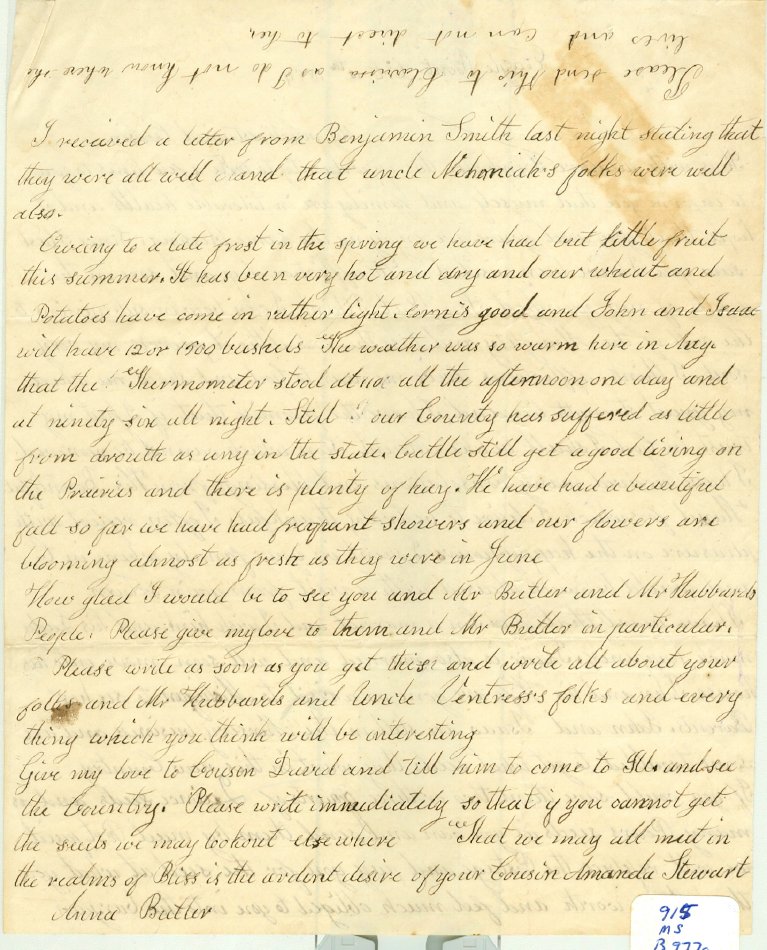 Please send this to Clarissa as I do not know where she
lives and can not direct to her.
I recieved a letter from Benjamin Smith last night stating that
they were all well and that uncle Nehomiah's folks were well
also.
Owing to a late frost in the spring we have had but little fruit
this summer. It has been very hot and dry and our wheat and
Potatoes have come in rather light. Corn is good and John and Isaac
will have 12 or 1500 bushels The weather was so warm here in Aug.
that the Thermometer stood at 110 all the afternoon one day and
at ninety six all night. Still our County has suffered as little
from drouth as any in the state. Cattle still get a good living on
the Prairies and there is plenty of hay. We have had a beautiful
fall so far we have had frequant showers and our flowers are
blooming almost as fresh as they were in June
How glad I would be to see you and Mr Butler and Mr Hubbards
People. Please give my love to them and Mr Butler in particular.
Please write as soon as you get this and write all about your
folks and Mr Hubbards and Uncle Ventress's folks and every
thing which you think will be interesting
Give my love to Cousin David and till him to come to Ill. and see
the Country. Please write immediately so that if you cannot get
the seeds we may lookout elsewhere That we may all meet in
the realms of Bliss is the ardent desire of your Cousin Amanda Stewart
Anna Butler
915
MS
B977c